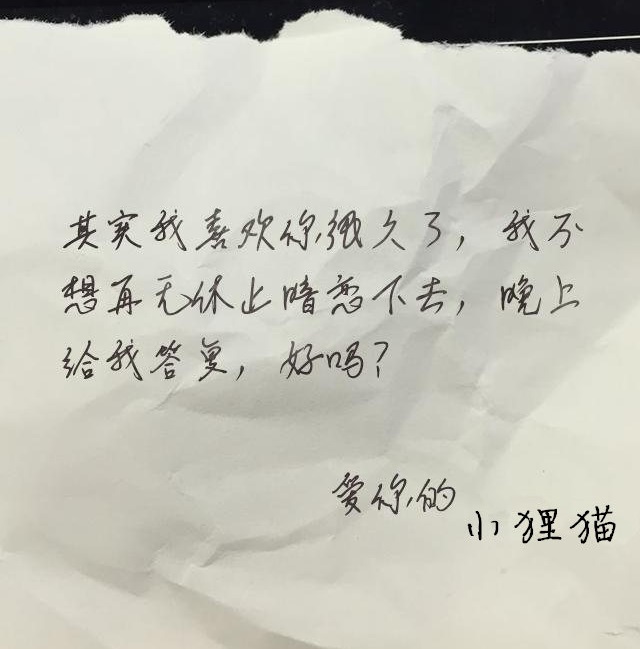 其实我喜欢你很久了，我不
想再无休止暗恋下去，晚上
给我答复，好吗？
爱你的
小狸猫